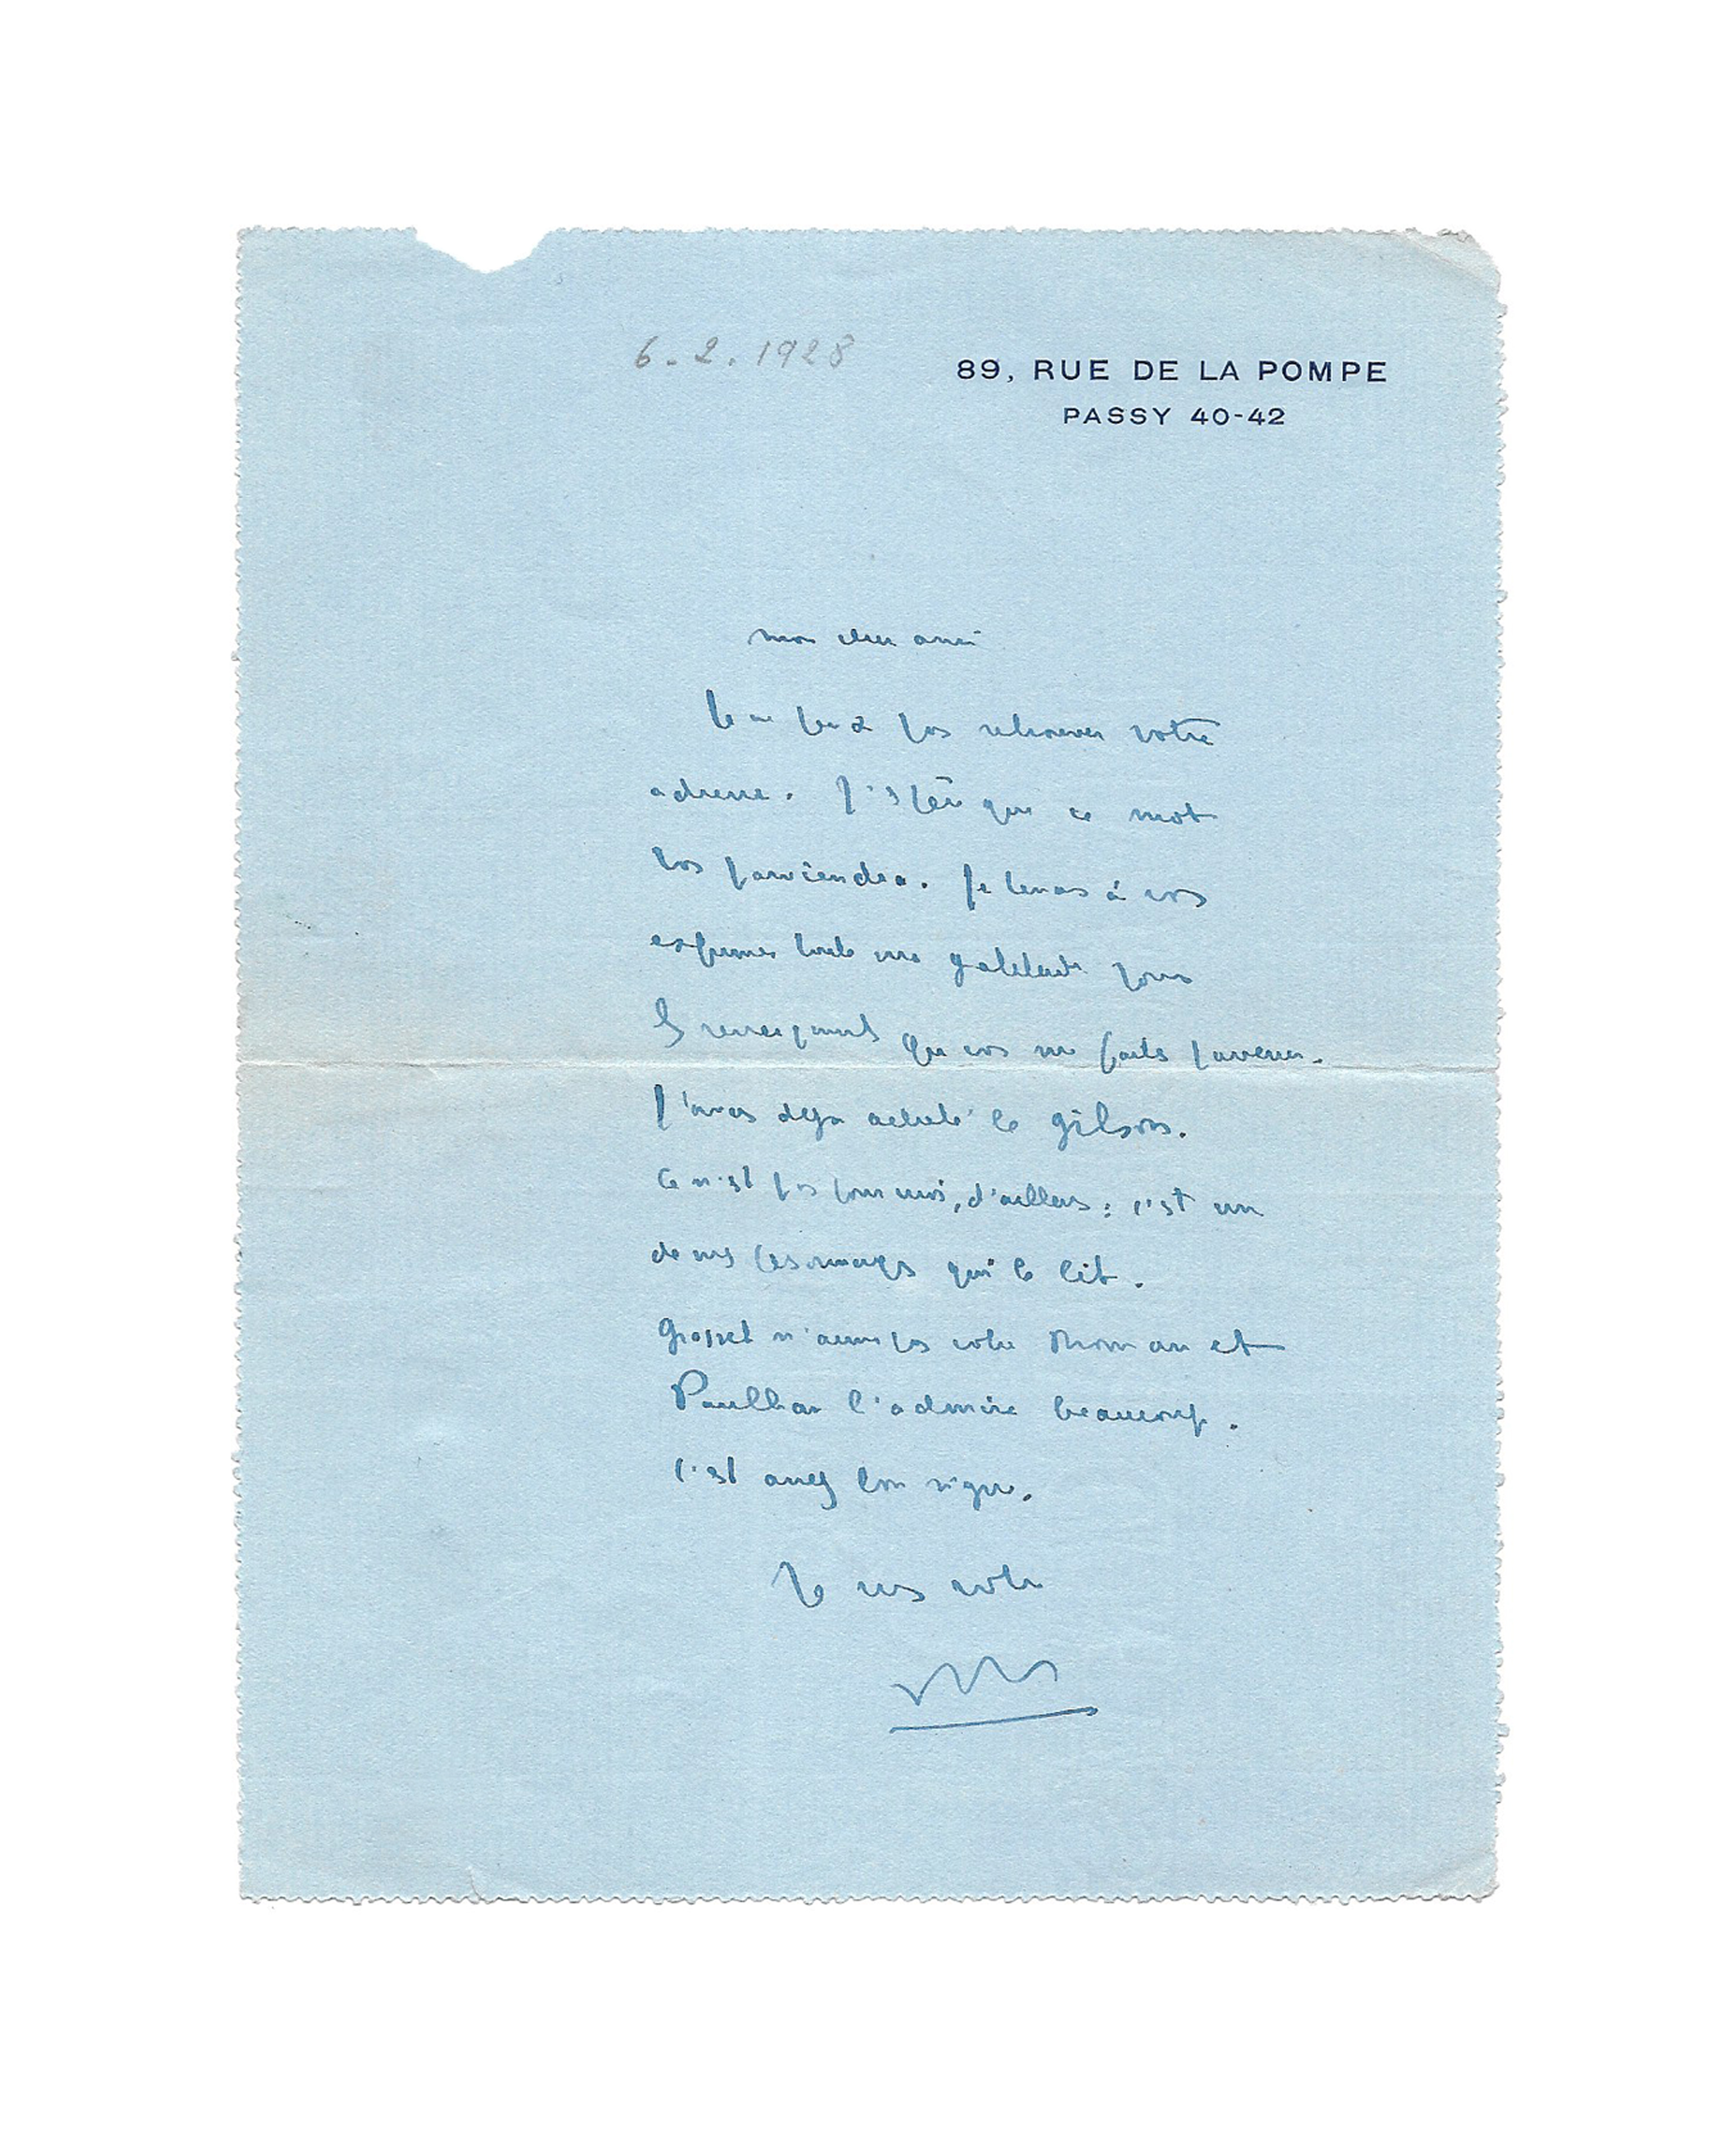 6.2.1928
89, RUE DE LA POMPE
PASSY 40-42
mon cher ami
Je ne peux pas retrouver votre
adresse. J'espère que ce mot
vos parviendra. Je tenais à vos
exprimer toute ma gratitude pour
les renseignements que vos me faites parvenir.
J'avais déjà acheté le Gilson.
Ce n'est pas pour moi, d'ailleurs : c'est un
de mes personnages qui le lit.
Grasset n'aime pas votre roman et
Paulhan l'admire beaucoup.
C'est assez bon signe.
Je suis votre